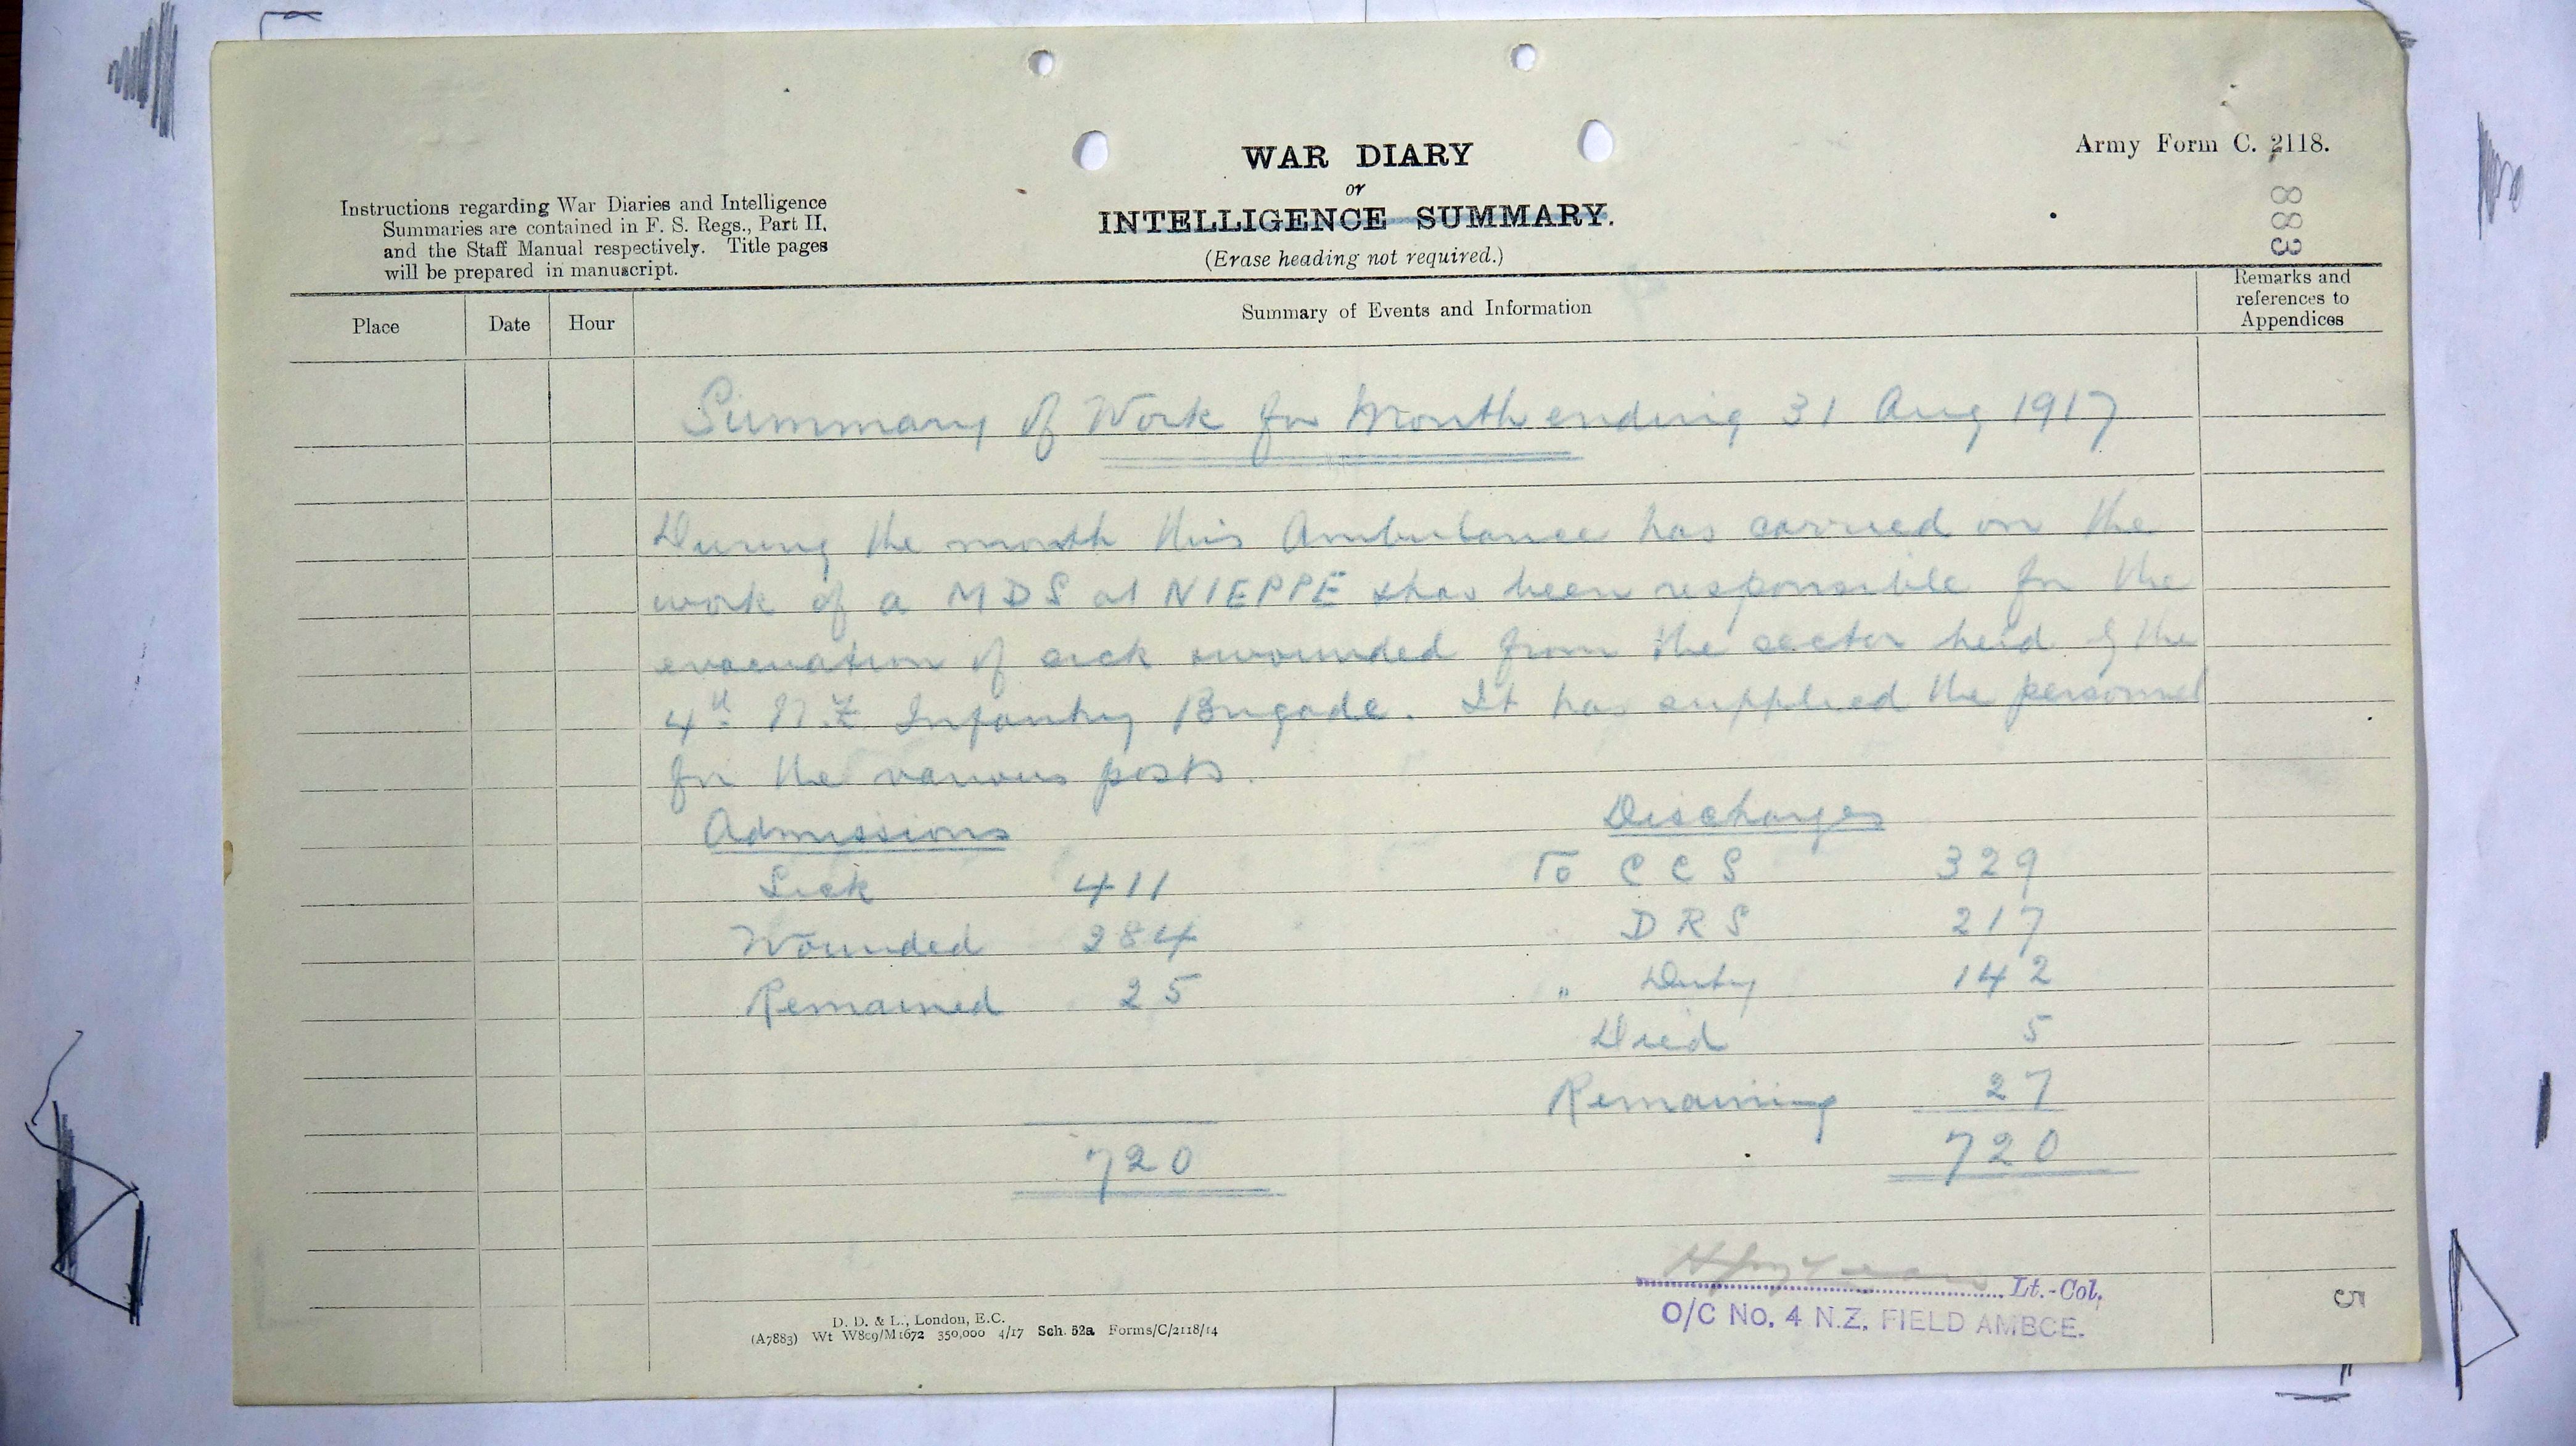 Army Form C. 2118.
883
WAR DIARY
or
INTELLIGENCE SUMMARY.
(Erase heading not required.)
Instructions regarding War Diaries and Intelligence
Summaries are contained in F. S. Regs., Part II,
and the Staff Manual respectively. Title pages
will be prepared in manuscript.
Place Date Hour Summary of Events and Information Remarks and
references to
Appendices
Summary of Work for Month ending 31 Aug 1917
During the month this Ambulance has carried on the
work of a MDS at NIEPPE & has been responsible for the
evacuation of sick & wounded from the sector held by the
4th N.Z Infantry Brigade. It has supplied the personnel
for the various posts.
Admissions Discharges
Sick 411 To C C S 329
Wounded 284 D R S 217
Remained 25 " Duty 142
Died 5
Remaining 27
720 720
Lt.-Col,
O/C No. 4 N.Z. FIELD AMBCE.
5
D. D. & L., London, E.C.
(A7883) Wt W809/M1672 350,000 4/17 Sch. 52a Forms/C/2118/14